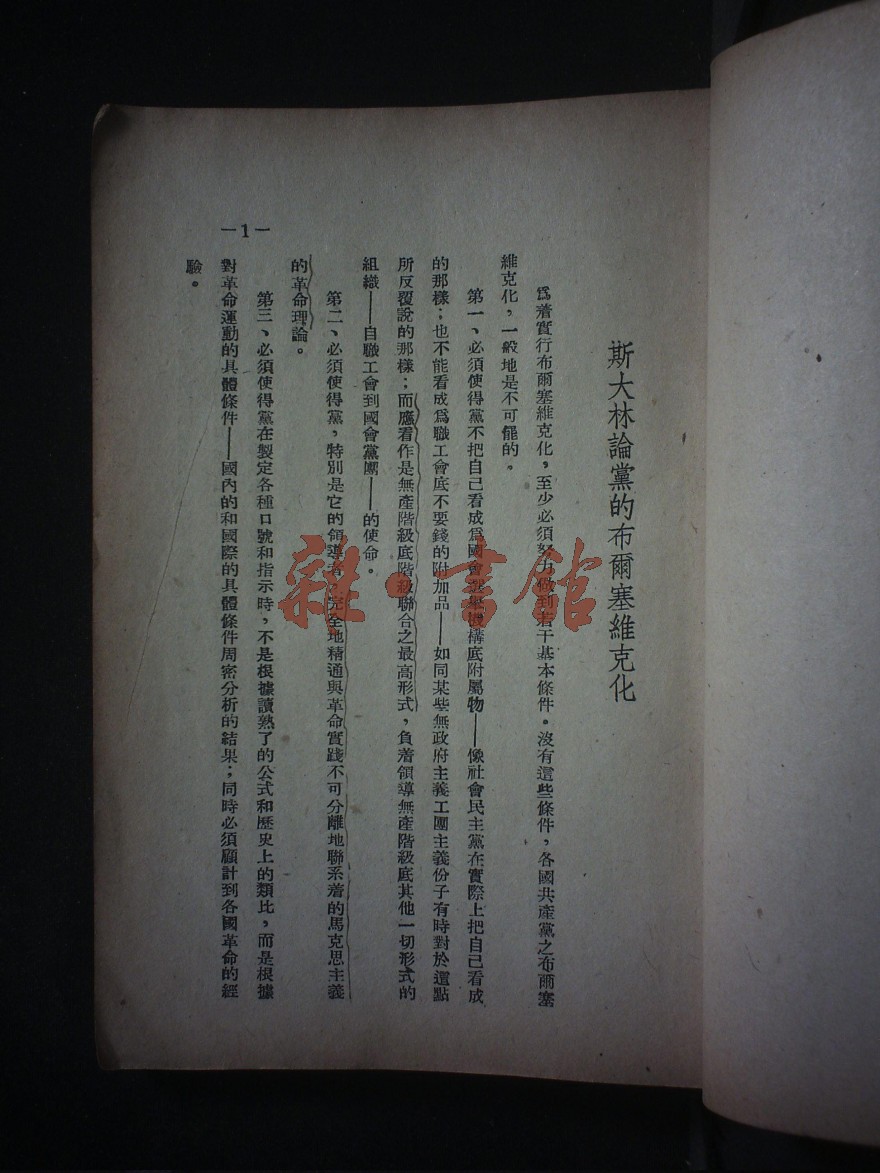 斯大林論黨的布爾塞維克化
爲着實行布爾塞維克化，至少必須努力做到若干基本條件。沒有這些條件，各國共產黨之布爾塞
維克化，一般地是不可能的。
第一、必須使得黨不把自己看成爲國會選舉機構底附屬物——像社會民主黨在實際上把自己看成
的那樣；也不能看成爲職工會底不要錢的附加品——如同某些無政府主義工團主義份子有時對於這點
所反覆說的那樣；而應看作是無產階級底階級聯合之最高形式，負着領導無產階級底其他一切形式的
組織——自職工會到國會黨團——的使命。
第二、必須使得黨，特別是它的領導者，完全地精通與革命實踐不可分離地聯系着的馬克思主義
的革命理論。
第三、必須使得黨在製定各種口號和指示時，不是根據讀熟了的公式和歷史上的類比，而是根據
對革命運動的具體條件——國內的和國際的具體條件周密分析的結果；同時必須顧計到各國革命的經
驗。
—1—
雜·書館